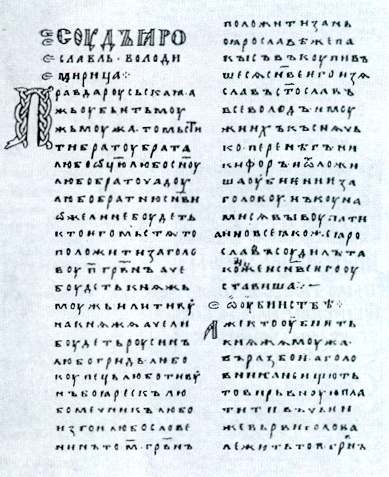 СОУДЪ ꙖРО
СЛАВЛЬ ВОЛОДИ
МИРИЦА ⁘
Правда роусьскаꙗ. а
жь оубьѥть моу
жь моужа. то мьсти
ти братоу брата
любо ѿцю любо сн҃оу
любо братоучадоу
любо братню сн҃ви
ѡже ли не боудеть
кто ѥго мьстѧ то
положити за голо
воу п҃ грв҃нъ аче
боудеть кнѧжь
моужь или тиоу
на кнѧжѧ аче ли
боудеть роусинъ
любо гридь. любо
коупець любо тивоу
нъ боꙗрескъ лю
бо мечникъ любо
изгои любо слове
нинъ то м҃ грв҃нъ
положити за нь
по ꙗрославѣ же па
кы съвъкоупивъ
шесѧ сн҃ве ѥго изѧ
славъ ст҃ославъ
всеволодъ и моу
жи ихъ къснѧчь
ко перенѣгъ ни
кифоръ и ѿложи
ша оубиѥниѥ за
головоу нъ коуна
ми сѧ выкоупати
а ино все ꙗкоже ꙗро
славъ соудилъ та
коже и сн҃ве ѥго оу
ставиша ⁘
ѡ оубииствѣ ⁘
Аже кто оубиѥть
кнѧжѧ моужа
въ разбои а голо
вника не ищють
то вирьвноую пла
тити въ чьѥи
же вьрви голова
лежить то п҃ грв҃нъ